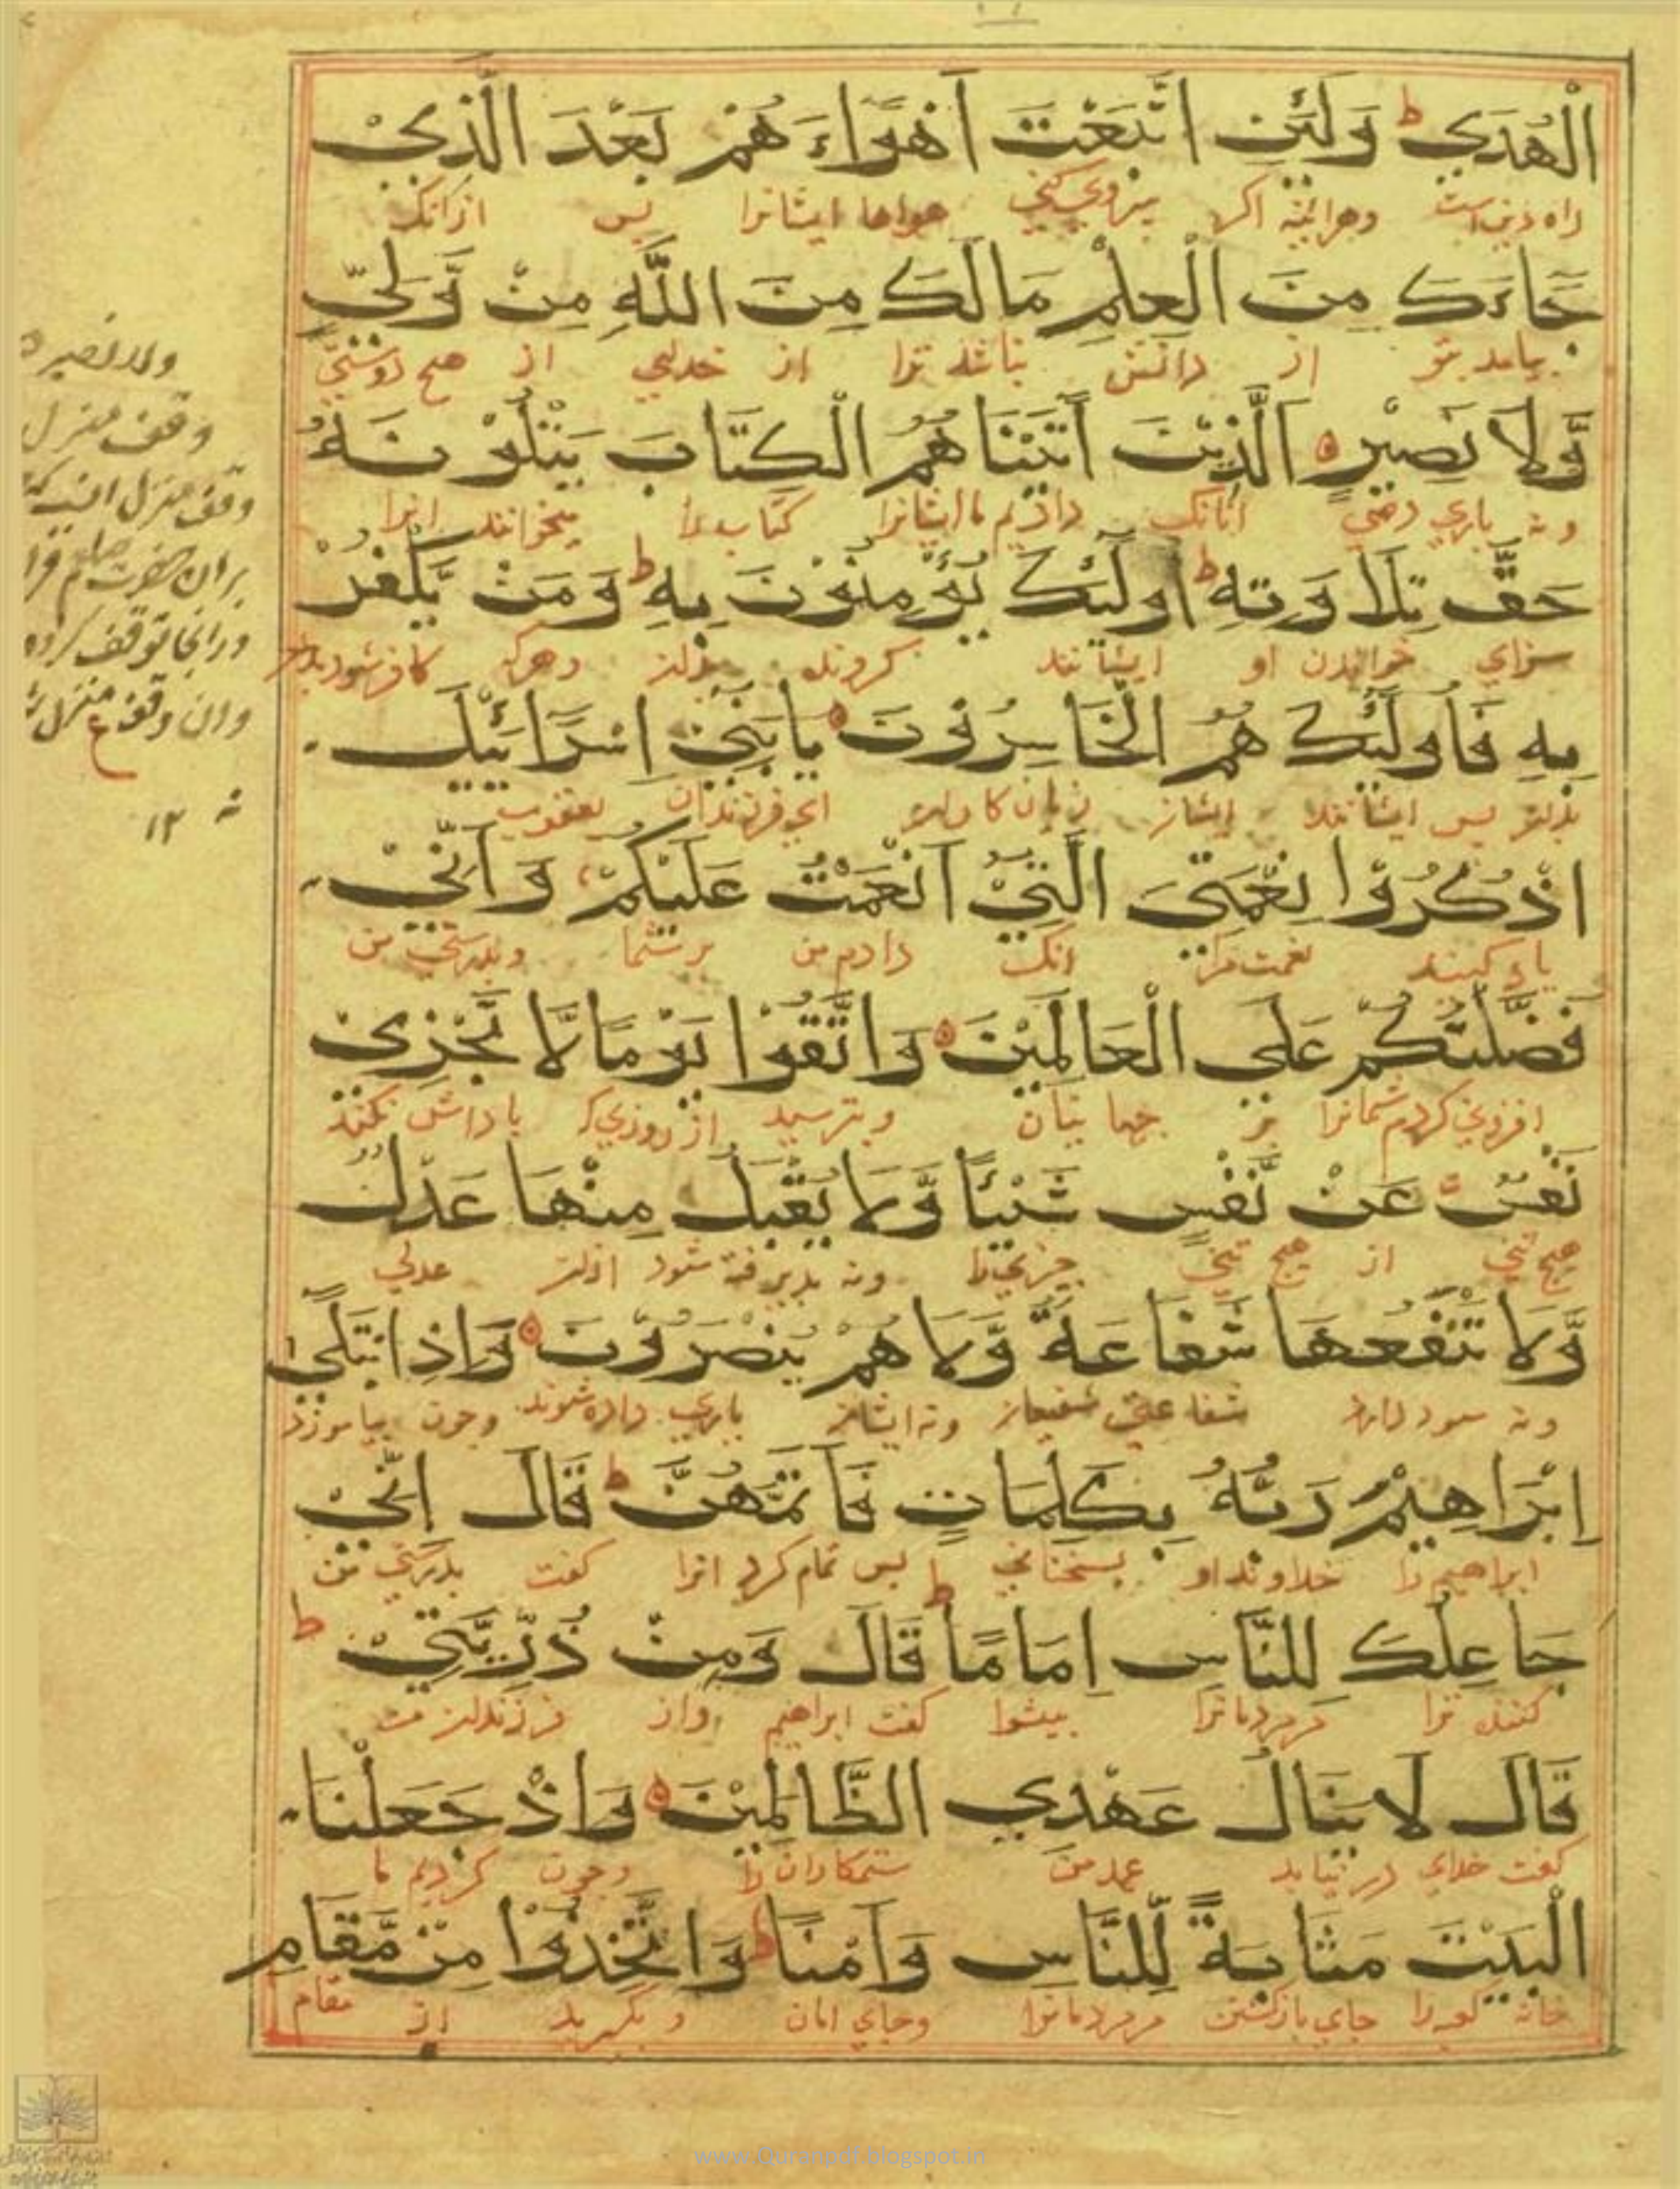 الْهُدَي ط وَلَئِنِ اتَّبَعْتَ اَهْوَاءَ هُمْ بَعْدَ الَّذِيْ
راه دین است وهراینه اکر پیروی کنی هواها ایشانرا پس ازانک
جَاءَكَ مِنَ الْعِلْمِ مَالَكَ مِنَ اللَّهِ مِنْ وَّلِيٍّ
بیامد بتو از دانش نباشد ترا از خدای از هیچ دوستی
وَّلَا نَصِيْرٍ الَّذِيْنَ اٰتَيْنَاهُمُ الْكِتَابَ يَتْلُوْنَهُ
ونه یاری دهی انانک دادیم ما ایشانرا کتاب را میخوانند انرا
حَقَّ تِلَاوَتِهِ ط اُولَئِكَ يُؤْمِنُوْنَ بِهِ ط وَمَنْ يَّكْفُرْ
سزای خواندن او ایشانند کروند بدان وهرکه کافر شود
بِهِ فَاُولَئِكَ هُمُ الْخَاسِرُوْنَ يَابَنِيْ اِسْرَائِيْلَ
بدان پس ایشانند ایشان زیان کاران ای فرزندان یعقوب
اذْكُرُوْا نِعْمَتِيَ الَّتِيْ اَنْعَمْتُ عَلَيْكُمْ وَاَنِّيْ
یاد کنید نعمت مرا انک دادم من بر شما وبدرستی من
فَضَّلْتُكُمْ عَلَي الْعَالَمِيْنَ وَاتَّقُوْا يَوْمًا لَّا تَجْزِيْ
افزونی کردم شمانرا بر جهانیان وبترسید از روزی که پاداش نکند
نَفْسٌ عَنْ نَّفْسٍ شَيْئًا وَّلَا يُقْبَلُ مِنْهَا عَدْلٌ
هیچ تنی از هیچ تنی چیزی را ونه پذیرفته شود ازان عدلی
وَّلَا تَنْفَعُهَا شَفَاعَةٌ وَّلَا هُمْ يُنْصَرُوْنَ وَاِذِ ابْتَلَي
ونه سود دارد شفاعتی شفیعان ونه ایشان یاری داده شوند وچون بیاموزد
اِبْرَاهِيْمَ رَبُّهُ بِكَلِمَاتٍ فَاَتَمَّهُنَّ ط قَالَ اِنِّيْ
ابراهیم را خداوند او بسخنانی پس تمام کرد انرا کفت بدرستی من
جَاعِلُكَ لِلنَّاسِ اِمَامًا ط قَالَ وَمِنْ ذُرِّيَّتِيْ ط
کننده ترا مردمانرا پیشوا کفت ابراهیم واز فرزندان من
قَالَ لَا يَنَالُ عَهْدِي الظَّالِمِيْنَ وَاِذْ جَعَلْنَا
کفت خدای در نیابد عهد من ستمکاران را وچون کردیم ما
الْبَيْتَ مَثَابَةً لِّلنَّاسِ وَاَمْنًا ط وَاتَّخِذُوْا مِنْ مَّقَامِ
خانه کعبه را جای بازکشتن مردمانرا وجای امان وبگیرید از مقام
ولا نصیر ه
وقف منزل
وقف منزل انست که
بران حضرت صلعم
ودرانجا توقف کرده
وان وقف منزل
ع
۱۲
www.Quranpdf.blogspot.in